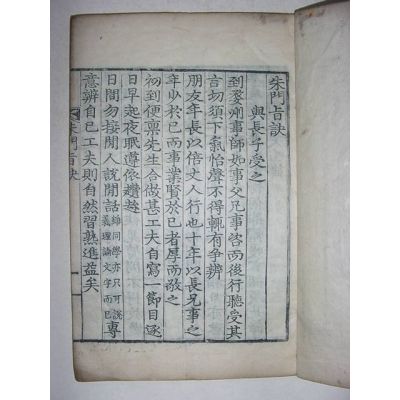 朱門旨訣
與長子受之
到婺州事師如事父兄事咨而後行聽受其
言切須下氣怡聲不得輒有爭辨
朋友年長以倍丈人行也十年以長兄事之
年少於己而事業賢於己者厚而敬之
初到便稟先生合做甚工夫自寫一節目逐
日早起夜眠遵依趲趁
日間勿接閒人說閒話雖同學亦只可說義理論文字而已專
意辨自己工夫則自然習熟進益矣
朱門旨訣 一